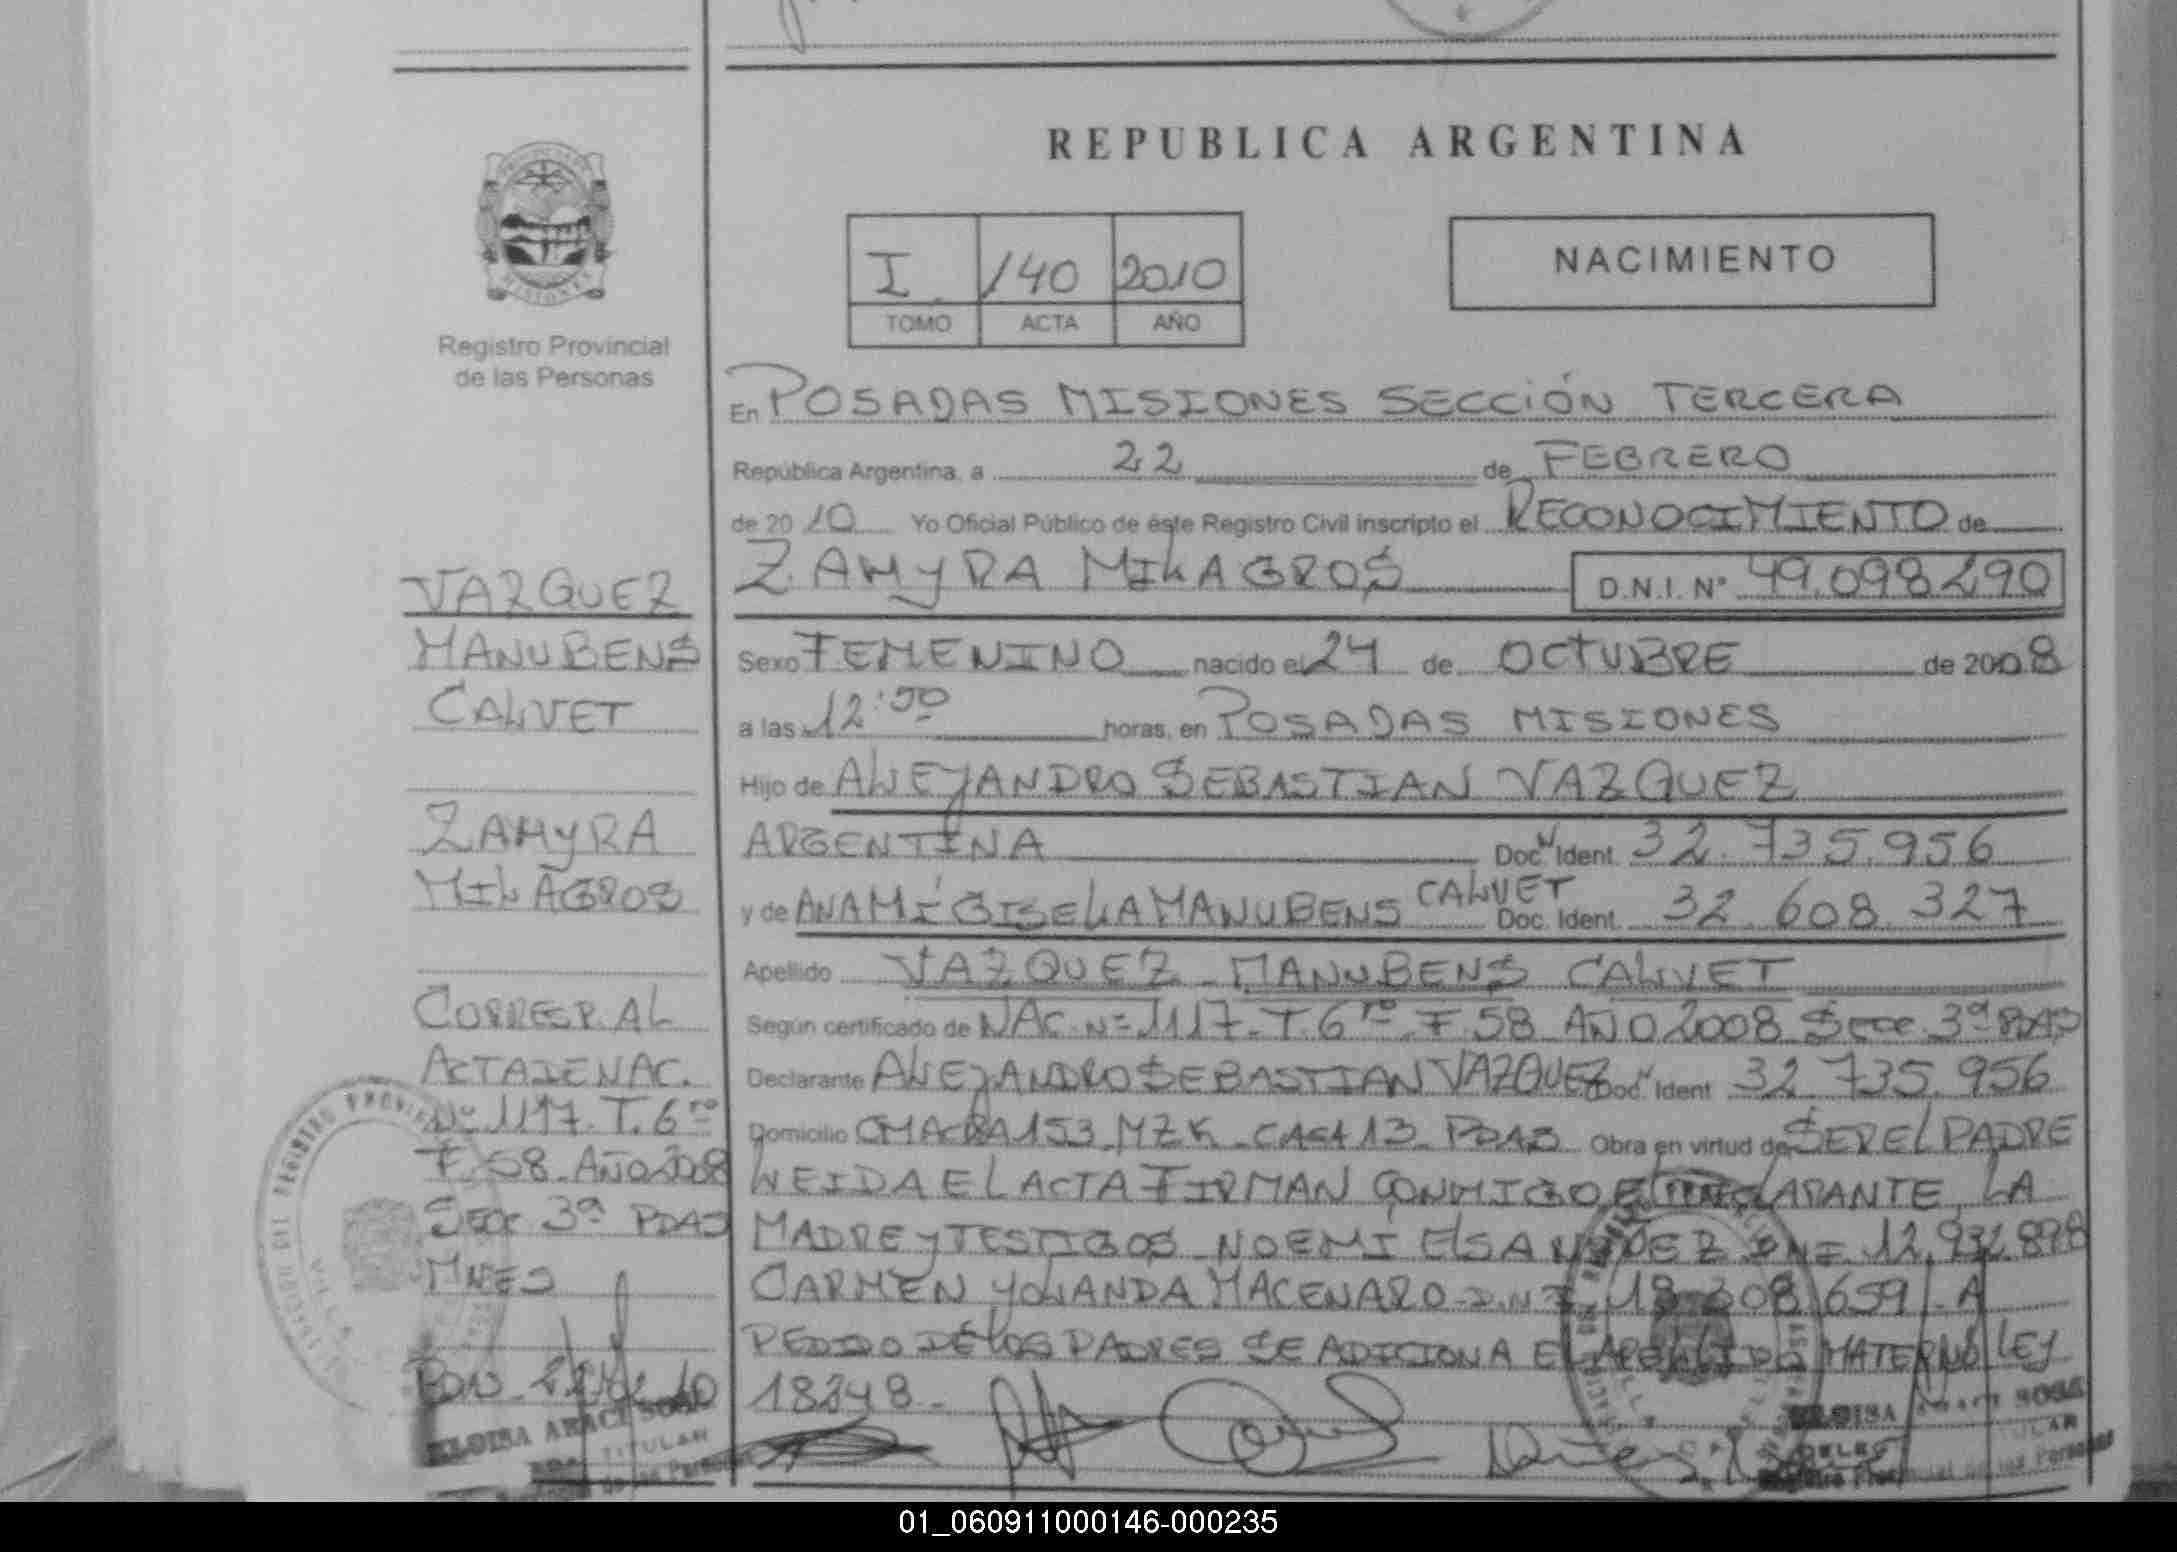 REPUBLICA ARGENTINA
NACIMIENTO
I 140 2010
TOMO ACTA AÑO
Registro Provincial
de las Personas
En POSADAS MISIONES SECCIÓN TERCERA
República Argentina, a 22 de FEBRERO
de 2010 Yo Oficial Público de éste Registro Civil inscripto el RECONOCIMIENTO de
ZAMYRA MILAGROS D.N.I. Nº 49.098.290
Sexo FEMENINO nacido el 24 de OCTUBRE de 2008
a las 12:50 horas, en POSADAS MISIONES
Hijo de ALEJANDRO SEBASTIAN VAZQUEZ
ARGENTINA Doc. Ident. 32.735.956
y de ANAMÍ GISELA MANUBENS CALVET Doc. Ident. 32.608.327
Apellido VAZQUEZ MANUBENS CALVET
Según certificado de NAC. Nº 1117. T. 6ro F. 58 AÑO 2008 SECC. 3ª PDAS
Declarante ALEJANDRO SEBASTIAN VAZQUEZ Doc. Ident. 32.735.956
Domicilio CHACRA 153 MZ K CASA 13 PDAS Obra en virtud de SER EL PADRE
LEIDA EL ACTA FIRMAN CONMIGO EL DECLARANTE, LA
MADRE Y TESTIGOS NOEMÍ ELSA DNI 12.932.898
CARMEN YOLANDA MACENARO D.N.I 18.208.659. A
PEDIDO DE LOS PADRES SE ADICIONA EL APELLIDO MATERNO LEY
18248.
VAZQUEZ
MANUBENS
CALVET
ZAMYRA
MILAGROS
CORRESP. AL
ACTA DE NAC.
Nº 1117. T. 6ro
F. 58 AÑO 2008
SECC 3ª PDAS
MNES
ELOISA ARACI SOSA
TITULAR
ELOISA ARACI SOSA
TITULAR
Registro Provincial de las Personas
01_060911000146-000235